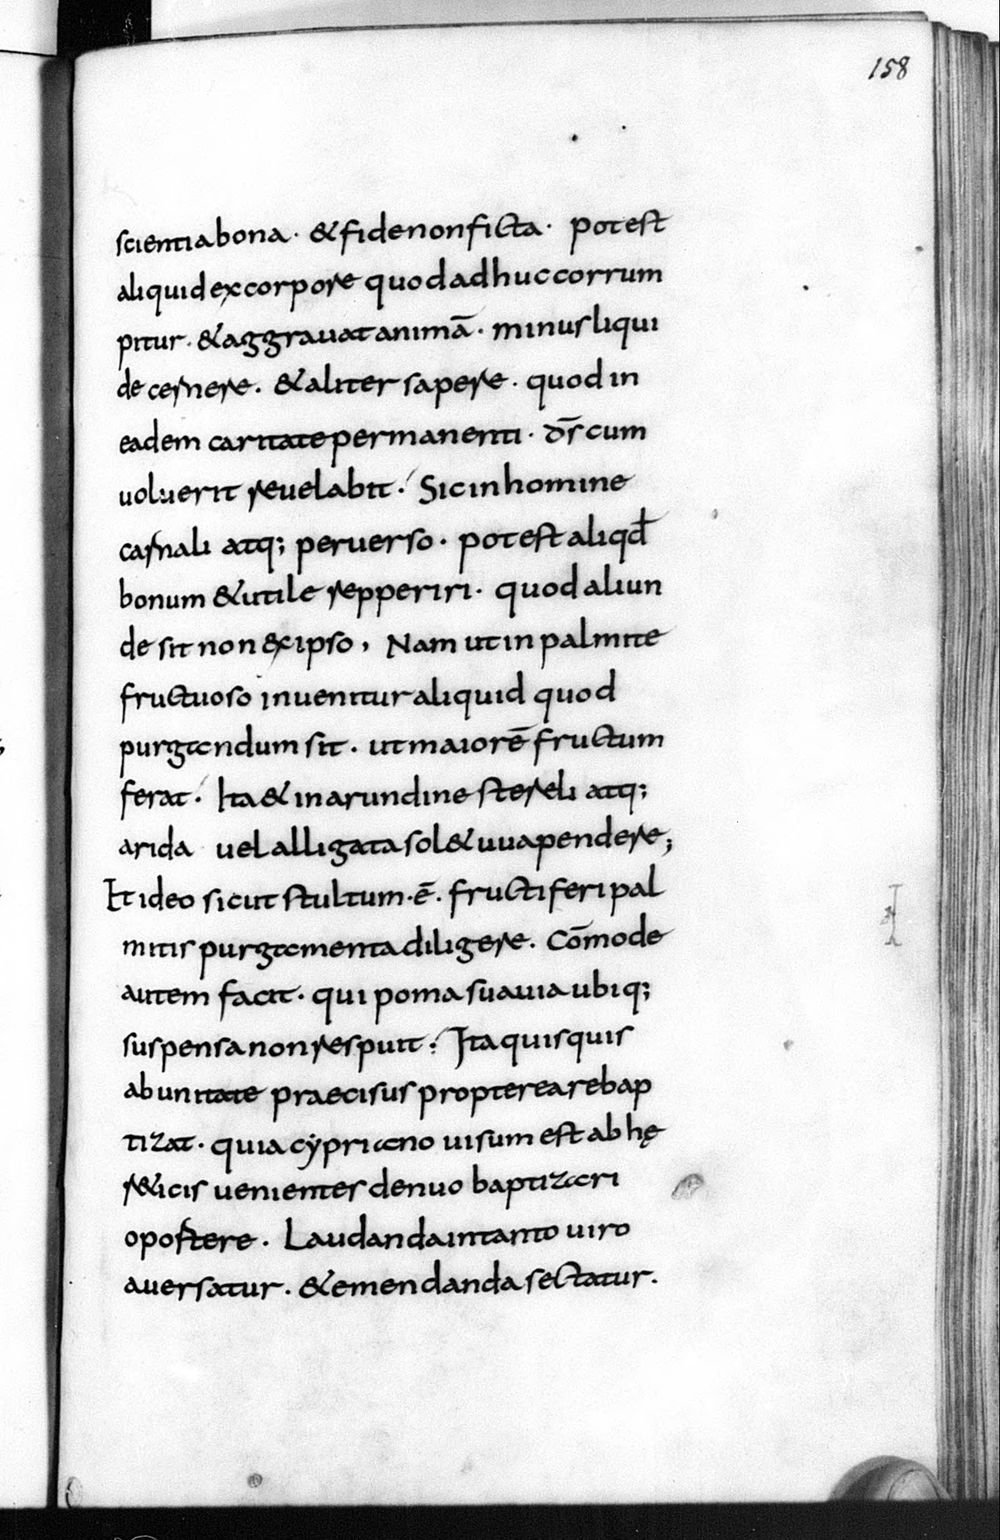 158
scientia bona · & fide non ficta · potest
aliquid ex corpore quod adhuc corrum
pitur · & aggrauat animā · minus liqui
de cernere · & aliter sapere · quod in
eadem caritate permanenti · d̄s cum
uoluerit reuelabit · Sic in homine
carnali atq; peruerso · potest aliqđ
bonum & utile repperiri · quod aliun
de sit non ex ipso , Nam ut in palmite
fructuoso inuenitur aliquid quod
purgandum sit · ut maiorē fructum
ferat · Ita & in arundine stereli atq;
arida uel alligata sol& uua pendere;
Et ideo sicut stultum · ē · fructiferi pal
mitis purgamenta diligere · Cōmode
autem facit · qui poma suauia ubiq;
suspensa non respuit : Ita quisquis
ab unitate praecisus propterea rebap
tizat · quia cẏpriano uisum est ab hę
r&icis uenientes denuo baptizari
oportere · Laudanda in tanto uiro
auersatur · & emendanda sectatur ·